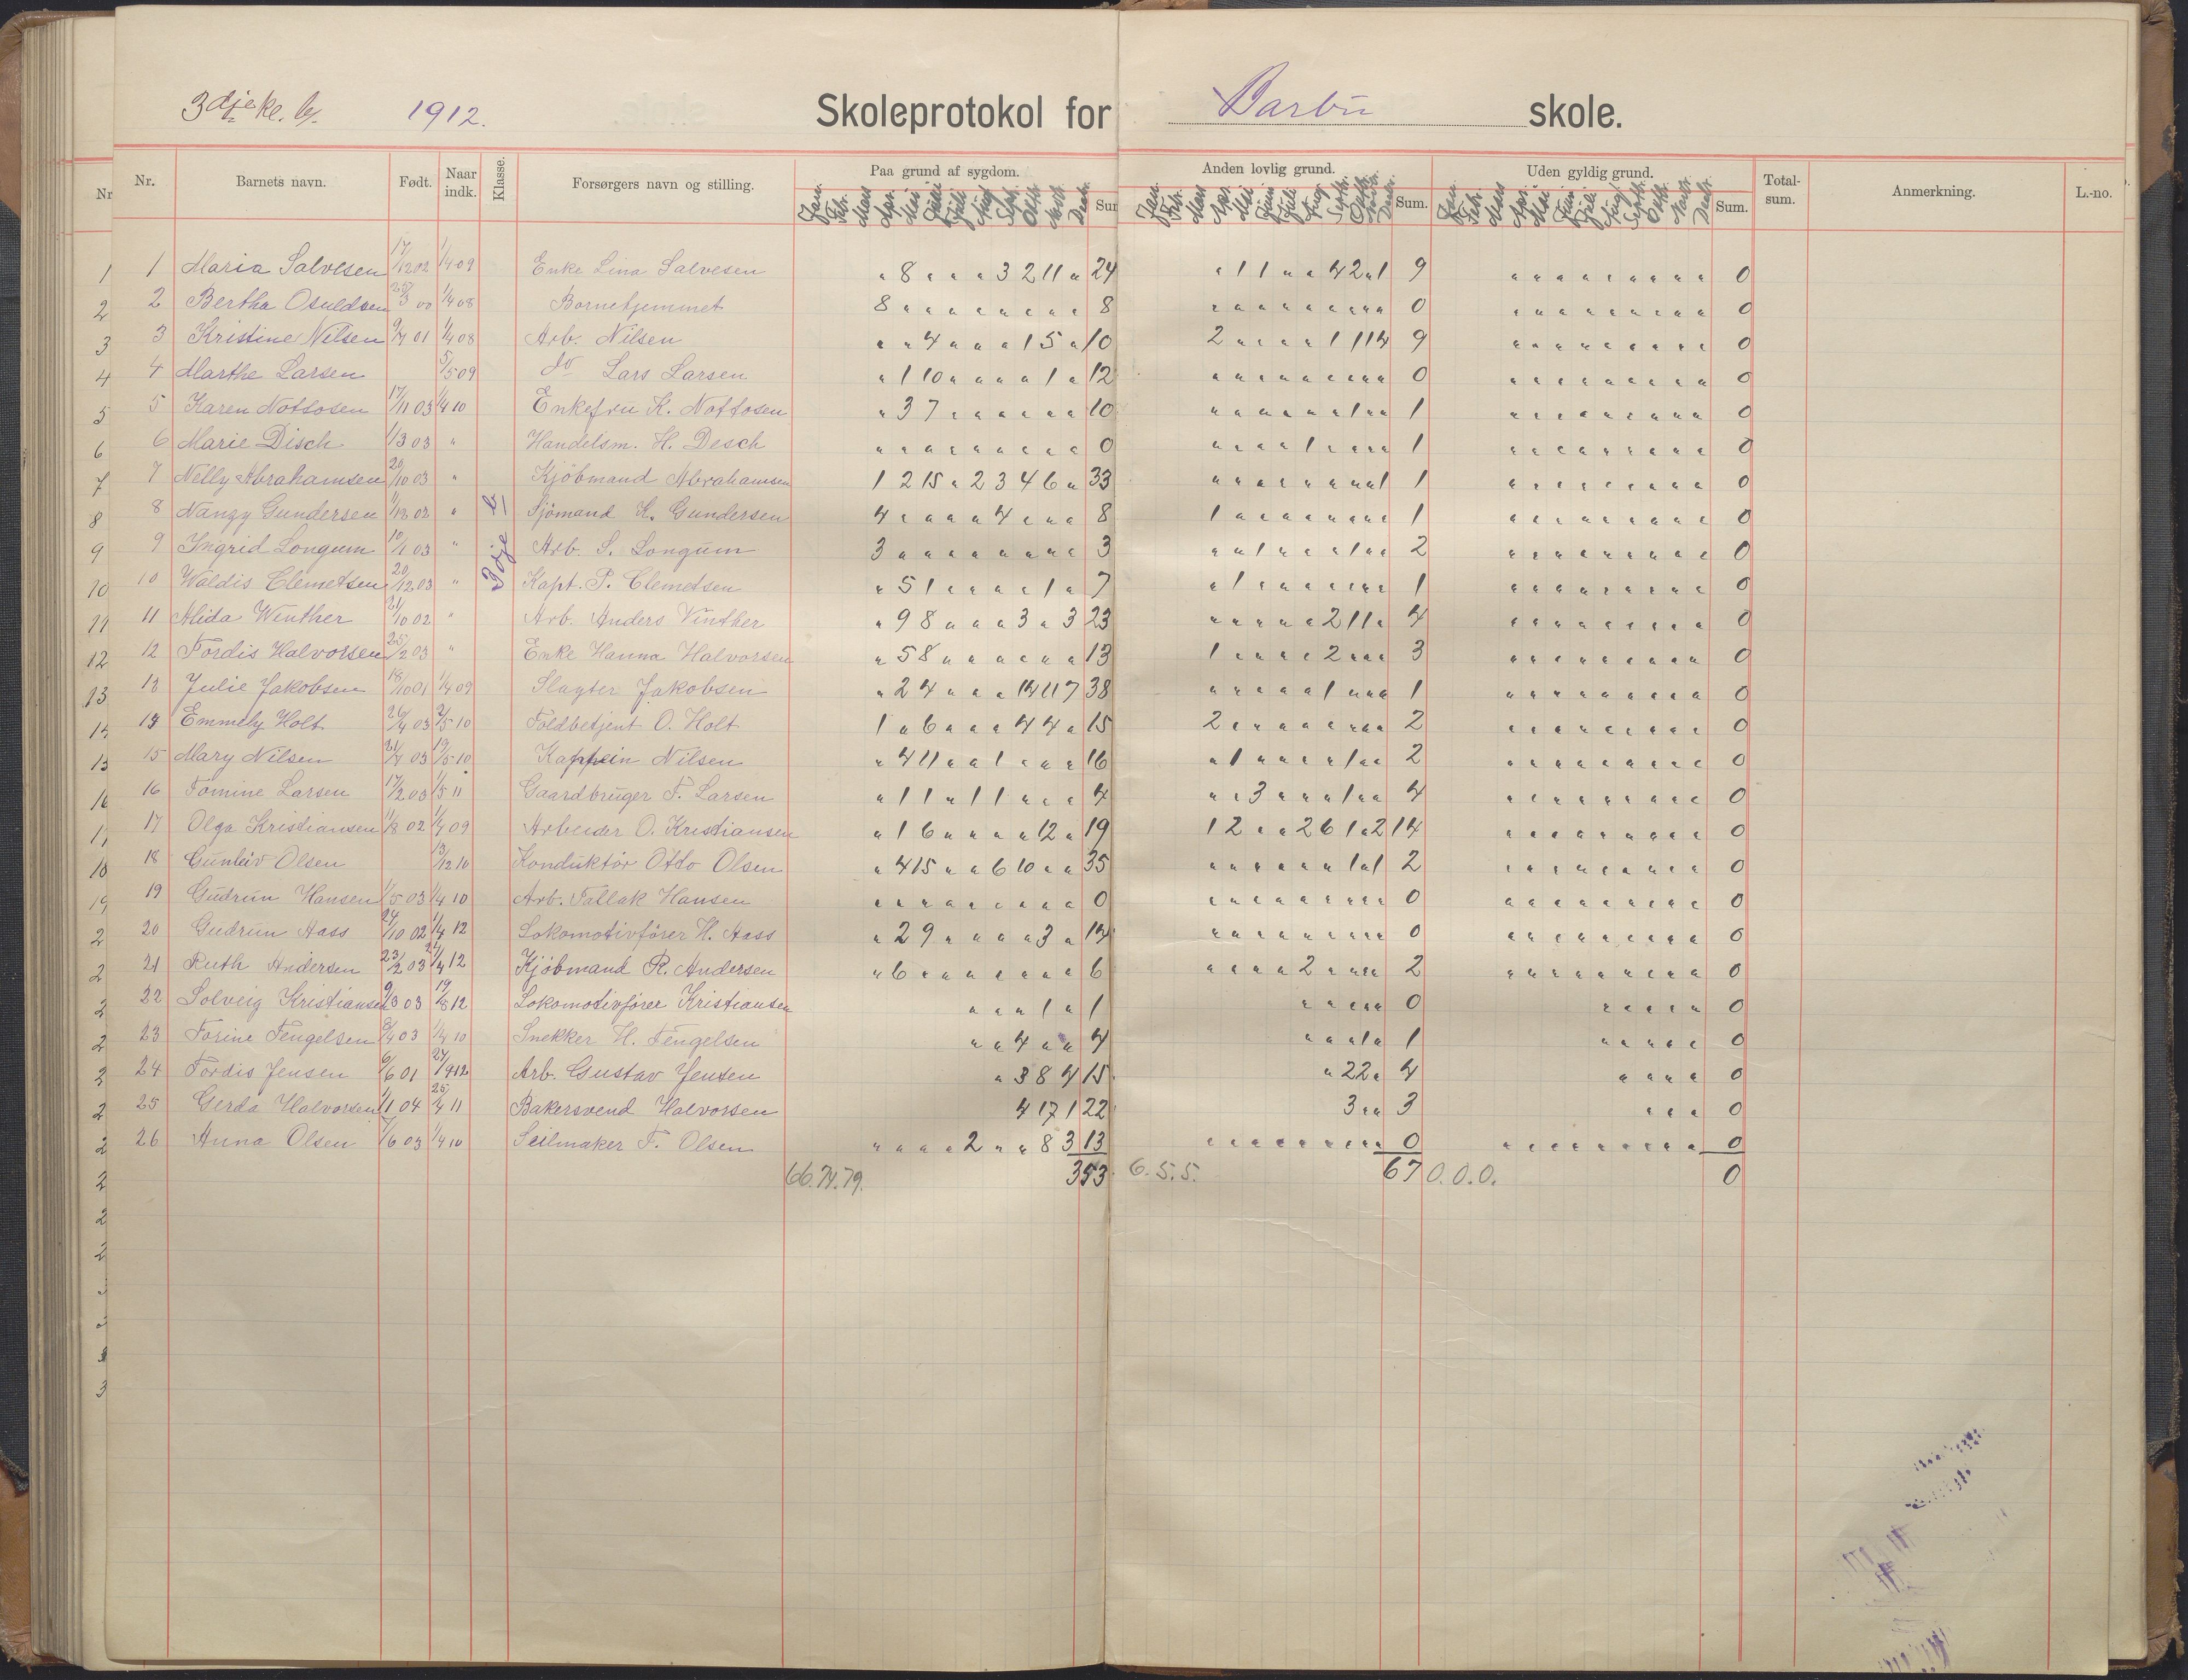 3dje kl. b. 1912. Skoleprotokol for Barbu skole.
Nr. Barnets navn. Født. Naar indk. Klasse. Forsørgers navn og stilling. Paa grund af sygdom. Sum Anden lovlig grund. Sum. Uden gyldig grund. Sum. Total-sum. Anmerkning. L.-no.
Jan. Febr. Mars Apr. Mai Juni Juli Aug Sept. Oktb. Novb. Decbr.
3dje b
1 Maria Salvesen 17/12 02 1/4 09 Enke Lina Salvesen " 8 " " " 3 2 11 " 24 " 1 1 " " 4 2 " 1 9 " " " " " " " " " 0
2 Bertha Osuldsen 25/3 00 1/4 08 Bornehjemmet 8 " " " " " " " " 8 " " " " " " " " " 0 " " " " " " " " " 0
3 Kristine Nilsen 9/4 01 1/4 08 Arb. Nilsen " " 4 " " " 1 5 " 10 2 " " " " 1 1 1 4 9 " " " " " " " " " 0
4 Marthe Larsen 5/5 09 do Lars Larsen " 1 10 " " " " 1 " 12 " " " " " " " " " 0 " " " " " " " " " 0
5 Karen Nottosen 17/11 03 1/4 10 Enkefru K. Nottosen " 3 7 " " " " " " 10 " " " " " " 1 " " 1 " " " " " " " " " 0
6 Marie Disch 1/3 03 " Handelsm. H. Desch " " " " " " " " " 0 " " " " 1 " " " " 1 " " " " " " " " " 0
7 Nelly Abrahamsen 20/10 03 " Kjöbmand Abrahamsen 1 2 15 " 2 3 4 6 " 33 " " " " " " " " 1 1 " " " " " " " " " 0
8 Nangy Gundersen 1/12 02 " Sjömand K. Gundersen 4 " " " " 4 " " " 8 1 " " " " " " " " 1 " " " " " " " " " 0
9 Ingrid Longum 10/1 03 " Arb. S. Longum 3 " " " " " " " " 3 " " 1 " " " 1 " " 2 " " " " " " " " " 0
10 Waldis Clemetsen 20/12 03 " Kapt. P. Clemetsen " 5 1 " " " " 1 " 7 " 1 " " " " " " " 1 " " " " " " " " " 0
11 Alida Winther 21/10 02 " Arb. Anders Vinther " 9 8 " " " 3 " 3 23 " " " " " 2 1 1 " 4 " " " " " " " " " 0
12 Tordis Halvorsen 25/2 03 " Enke Hanna Halvorsen " 5 8 " " " " " " 13 1 " " " " 2 " " " 3 " " " " " " " " " 0
13 Julie Jakobsen 18/10 01 1/4 09 Slagter Jakobsen " 2 4 " " " 14 11 7 38 " " " " " 1 " " " 1 " " " " " " " " " 0
14 Emmely Holt 26/4 03 2/5 10 Toldbetjent O. Holt 1 " 6 " " " 4 4 " 15 2 " " " " " " " " 2 " " " " " " " " " 0
15 Mary Nilsen 21/4 03 19/5 10 Kaptein Nilsen " 4 11 " " 1 " " " 16 " 1 " " " " 1 " " 2 " " " " " " " " " 0
16 Tomine Larsen 17/2 03 1/5 11 Gaardbruger T. Larsen " 1 1 " 1 1 " " " 4 " " 3 " " " 1 " " 4 " " " " " " " " " 0
17 Olga Kristiansen 11/8 02 1/4 09 Arbeider O. Kristiansen " 1 6 " " " " 12 " 19 1 2 " " 2 6 1 " 2 14 " " " " " " " " " 0
18 Gunleiv Olsen 13/12 10 Konduktör Otto Olsen " 4 15 " " 6 10 " " 35 " " " " " " 1 " 1 2 " " " " " " " " " 0
19 Gudrun Hansen 1/5 03 1/4 10 Arb. Tallak Hansen " " " " " " " " " 0 " " " " " " " " " 0 " " " " " " " " " 0
20 Gudrun Aass 24/10 02 1/4 12 Lokomotivförer H. Aass " 2 9 " " " " 3 " 14 " " " " " " " " " 0 " " " " " " " " " 0
21 Ruth Andersen 23/2 03 24/4 12 Kjöbmand R. Andersen " 6 " " " " " " " 6 " " " " 2 " " " " 2 " " " " " " " " " 0
22 Solveig Kristiansen 9/3 03 19/8 12 Lokomotivförer Kristiansen " " " 1 " 1 " " " " " 0 " " " " " 0
23 Torine Tengelsen 8/4 03 1/4 10 Snekker H. Tengelsen " " 4 " " 4 " " " 1 " 1 " " " " " 0
24 Tordis Jensen 6/6 01 24/9 12 Arb. Gustav Jensen " 3 8 4 15 " 2 2 " 4 " " " " 0
25 Gerda Halvorsen 1/1 04 25/4 11 Bakersvend Halvorsen 4 17 1 22 3 " " 3 " " " 0
26 Anna Olsen 1/6 03 1/4 10 Seilmaker T. Olsen " " " " 2 " " 8 3 13 " " " " " " " " " 0 " " " " " " " " " 0
66.74.79. 353 6.5.5. 67 0.0.0. 0